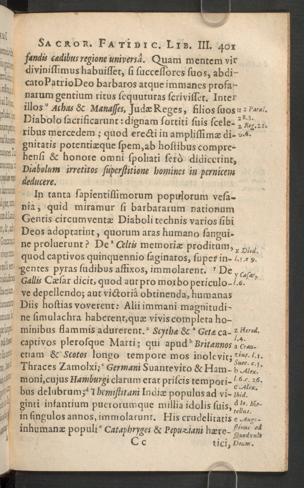 SACROR. FATIDIC. LIB. III. 401
fandis cædibus regione universâ. Quam mentem vir
divinissimus habuisset, si successores suos, abdi-
cato Patrio Deo barbaros atque immanes profa-
narum gentium ritus sequuturas scrivisset. Inter
illos u Achas & Manasses, Judæ Reges, filios suos
Diabolo sacrificarunt: dignam sortiti suis scele-
ribus mercedem; quod erecti in amplissimæ di-
gnitatis potentiæque spem, ab hostibus compre-
hensi & honore omni spoliati serò didicerint,
Diabolum irretitos superstitione homines in perniciem
deducere.
In tanta sapientissimorum populorum vesa-
nia, quid miramur si barbararum nationum
Gentis circumventæ Diaboli technis varios sibi
Deos adoptarint, quorum aras humano sangui-
ne proluerunt? De x Celtis memoriæ proditum,
quod captivos quinquennio saginatos, super in-
gentes pyras sudibus affixos, immolarent. y De
Gallis Cæsar dicit, quod aut pro morbo periculo-
ve depellendo; aut victoriâ obtinenda, humanas
Diis hostias voverent: Alii immani magnitudi-
ne simulachra haberent, quæ vivis completa ho-
minibus flammis adurerent. z Scythæ & a Getæ ca-
captivos plerosque Marti; qui apud b Britannos
etiam & Scotos longo tempore mos inolevit;
Thraces Zamolxi; c Germani Suantevito & Ham-
moni, cujus Hamburgi clarum erat priscis tempori-
bus delubrum; d Themistitani Indiæ populos ad vi-
ginti infantium puerorumque millia idolis suis
in singulos annos, immolarunt. His crudelitatis
inhumanæ populi e Cataphryges & Pepuziani hære-
C c
tici,
u 2 Paral.
2 Reg. 21.
x Diod.
y Cæsar,
l. 6.
z Herod.
l. 4.
b Alex.
l. 6. c. 26.
c Alex.
ibid.